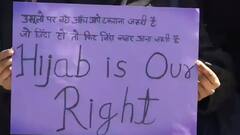 उसूलो पर जहाँ आंच आये टकराना जरूरी है
जो जिंदा हो तो फिर जिंदा नजर आना जरूरी है
Hijab is Our
Right